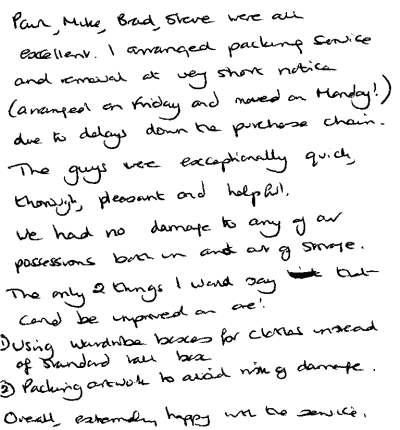 Paul, Mike, Brad, Steve were all
excellent. I arranged packing service
and removal at very short notice
(arranged on Friday and moved on Monday!)
due to delays down the purchase chain.
The guys were exceptionally quick,
thorough, pleasant and helpful.
We had no damage to any of our
possessions both in and out of storage.
The only 2 things I would say that
could be improved on are:
1) Using wardrobe boxes for clothes instead
of standard tall box
2) Packing artwork to avoid risk of damage.
Overall, extremely happy with the service.